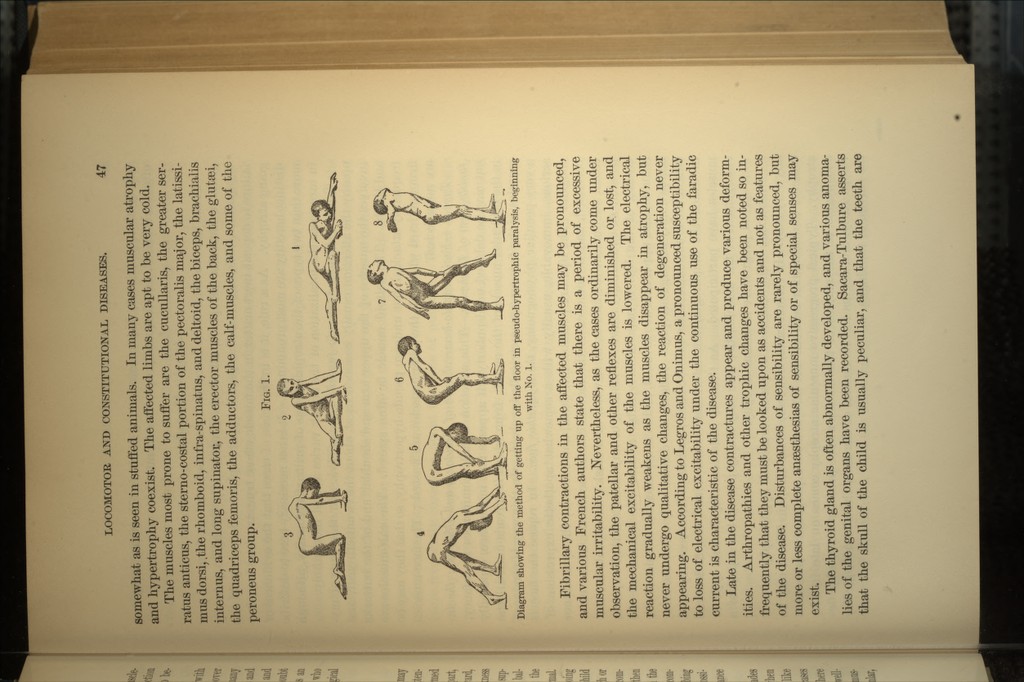 LOCOMOTOR AND CONSTITUTIONAL DISEASES. 47
somewhat as is seen in stuffed animals. In many cases muscular atrophy
and hypertrophy coexist. The affected limbs are apt to be very cold.
The muscles most prone to suffer are the cucullaris, the greater ser-
ratus anticus, the sterno-costal portion of the pectoralis major, the latissi-
mus dorsi, the rhomboid, infra-spinatus, and deltoid, the biceps, brachialis
internus, and long supinator, the erector muscles of the back, the glutæi,
the quadriceps femoris, the adductors, the calf-muscles, and some of the
peroneus group.
FIG. 1.
3 2 1
4 5 6 7 8
Diagram showing the method of getting up off the floor in pseudo-hypertrophic paralysis, beginning
with No. 1.
Fibrillary contractions in the affected muscles may be pronounced,
and various French authors state that there is a period of excessive
muscular irritability. Nevertheless, as the cases ordinarily come under
observation, the patellar and other reflexes are diminished or lost, and
the mechanical excitability of the muscles is lowered. The electrical
reaction gradually weakens as the muscles disappear in atrophy, but
never undergo qualitative changes, the reaction of degeneration never
appearing. According to Legros and Onimus, a pronounced susceptibility
to loss of electrical excitability under the continuous use of the faradic
current is characteristic of the disease.
Late in the disease contractures appear and produce various deform-
ities. Arthropathies and other trophic changes have been noted so in-
frequently that they must be looked upon as accidents and not as features
of the disease. Disturbances of sensibility are rarely pronounced, but
more or less complete anæsthesias of sensibility or of special senses may
exist.
The thyroid gland is often abnormally developed, and various anoma-
lies of the genital organs have been recorded. Sacara-Tulbure asserts
that the skull of the child is usually peculiar, and that the teeth are